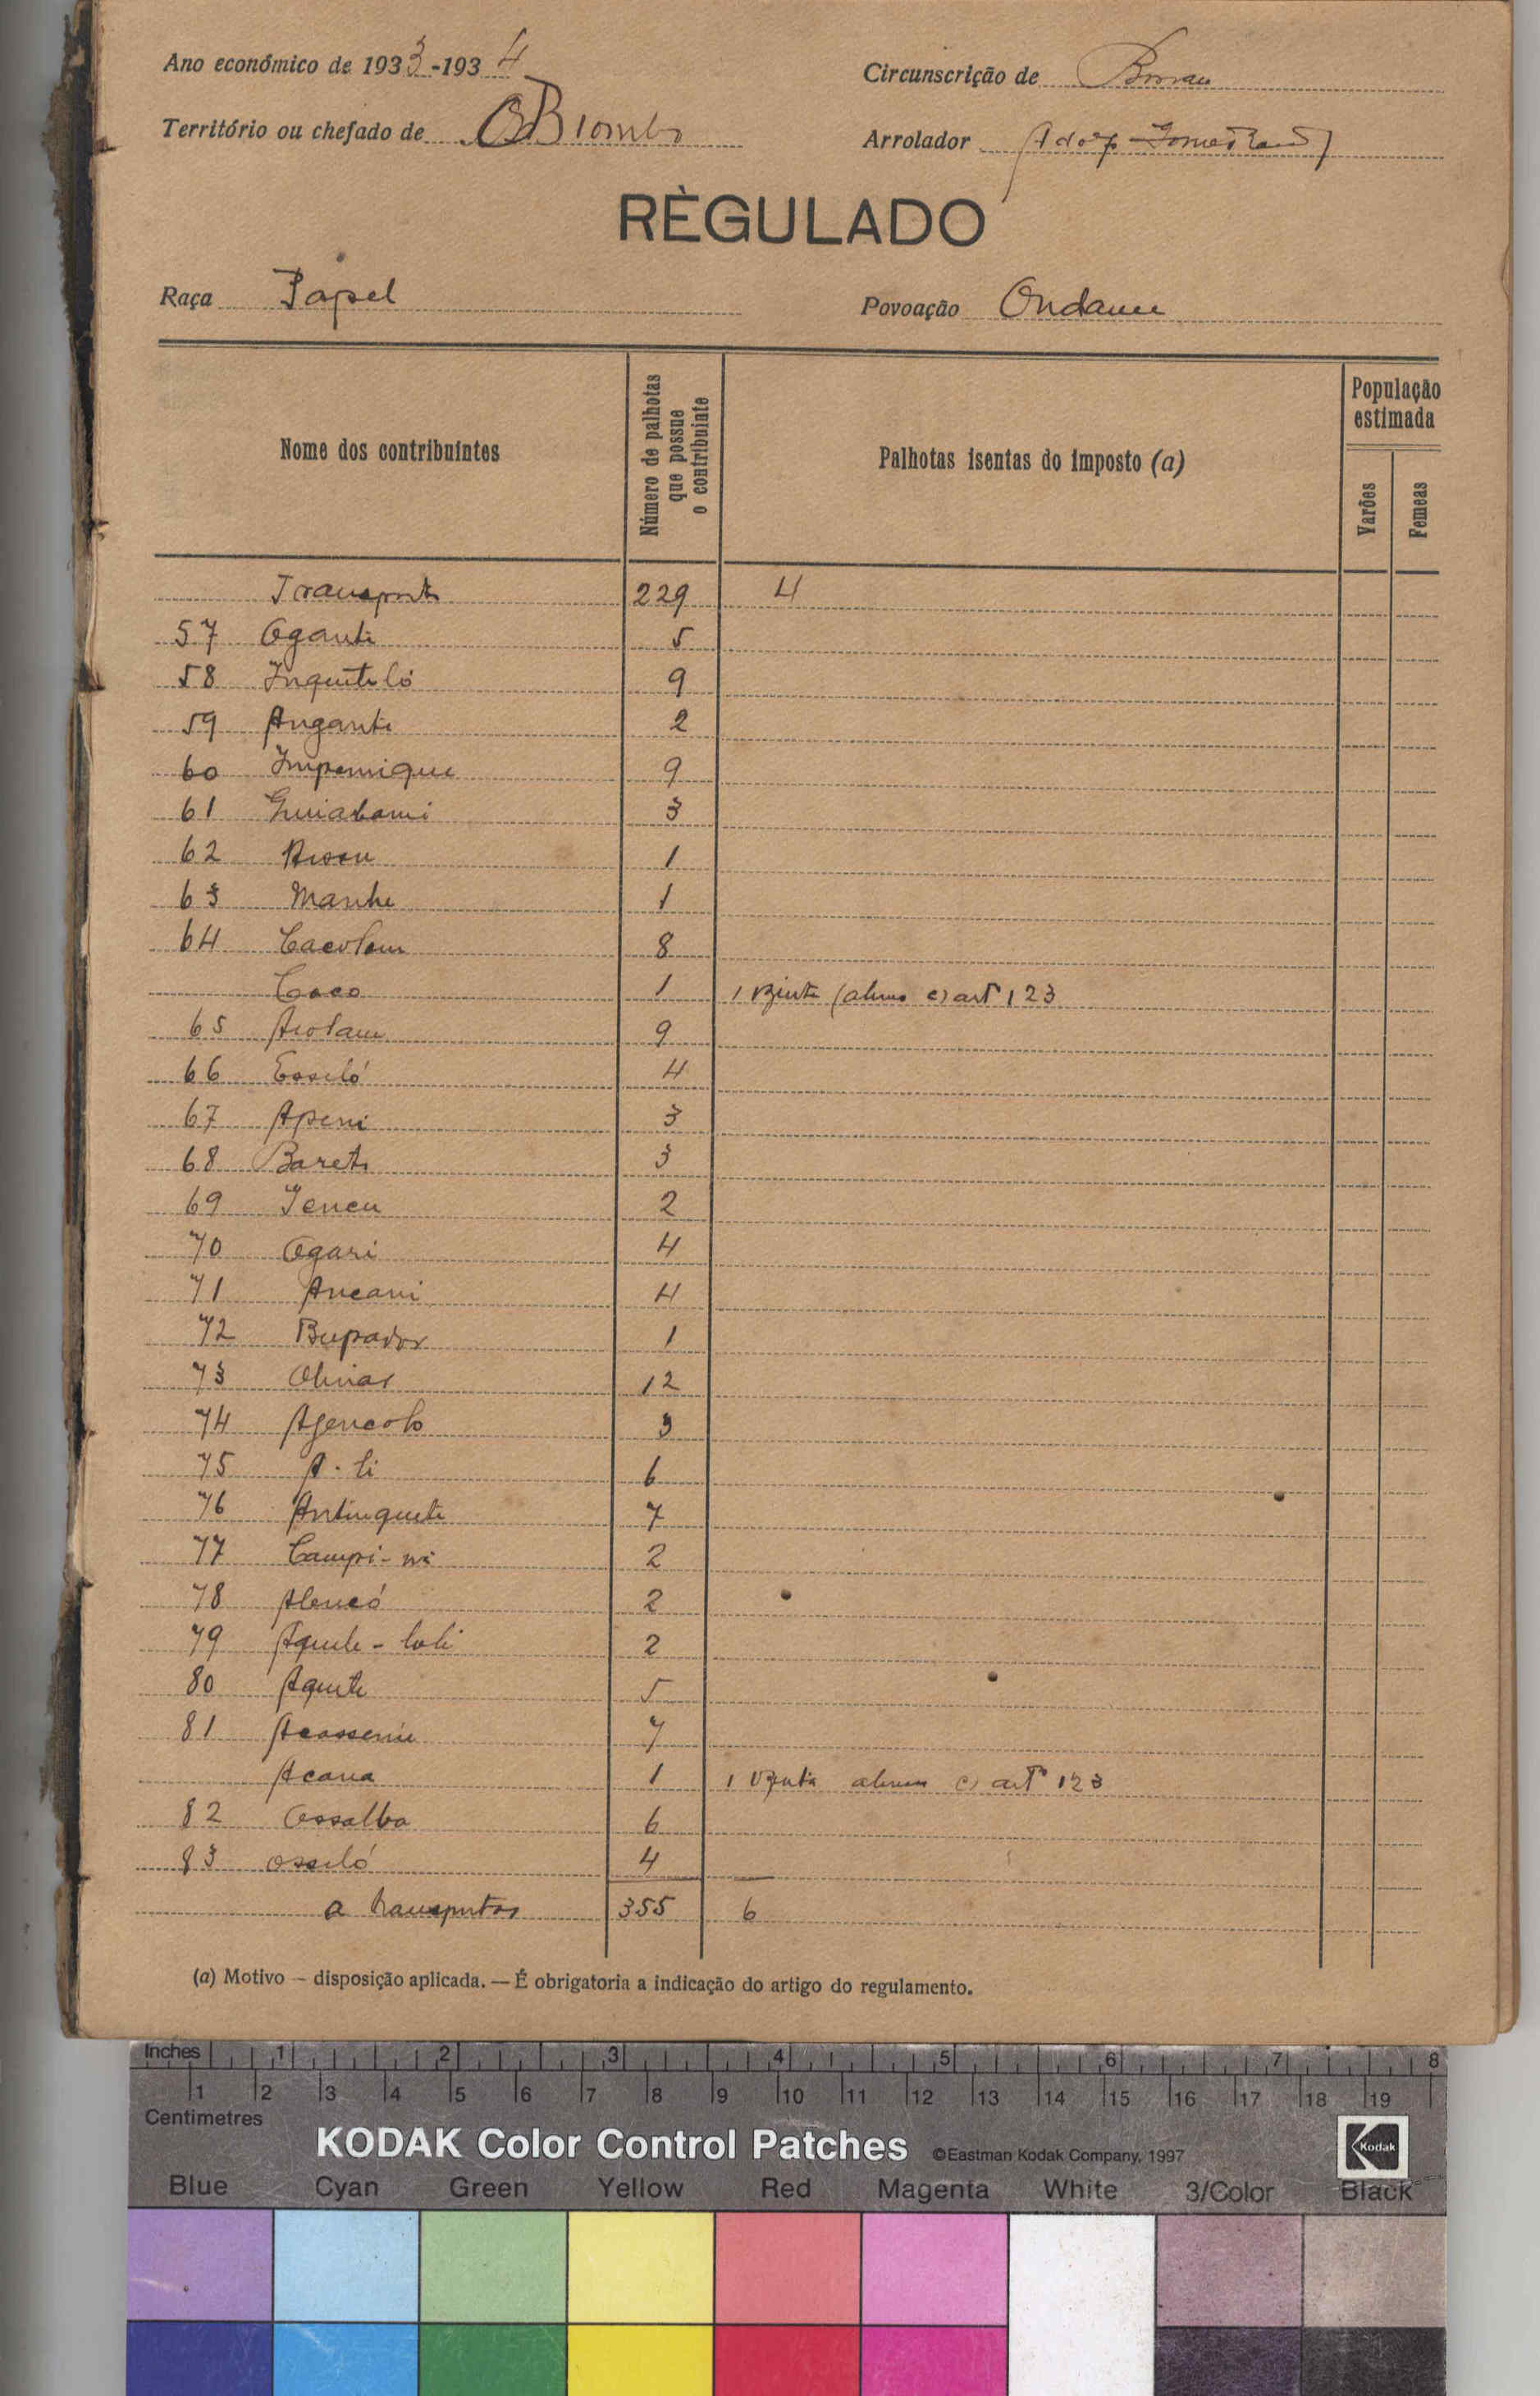 Ano económico de 1933-1934
Circunscrição de Bissau
Território ou chefado de Biombo
Arrolador
RÈGULADO
Raça Papel
Povoação Ondame
Nome dos contribuintes
Número de palhotas que possue o contribuinte
Palhotas isentas do imposto (a)
População estimada
Varões
Femeas
Transporte 229 4
57 Oganti 5
58 Inquiteló 9
59 Anganti 2
60 Impernique 9
61 3
62 1
63 Manhe 1
64 8
Coco 1 1 art 123
65 9
66 Essiló 4
67 Apeni 3
68 Bareti 3
69 2
70 Ogari 4
71 Ancani 4
72 Bupador 1
73 12
74 Agencolo 3
75 A-li 6
76 Antinqueti 7
77 Campi-ni 2
78 2
79 2
80 Aquite 5
81 7
Acana 1 1 art 123
82 Ossalba 6
83 Ossiló 4
a transportar 355 6
(a) Motivo — disposição aplicada. — É obrigatoria a indicação do artigo do regulamento.
Inches 1 2 3 4 5 6 7 8
1 2 3 4 5 6 7 8 9 10 11 12 13 14 15 16 17 18 19
Centimetres
KODAK Color Control Patches ©Eastman Kodak Company, 1997 Kodak
Blue Cyan Green Yellow Red Magenta White 3/Color Black